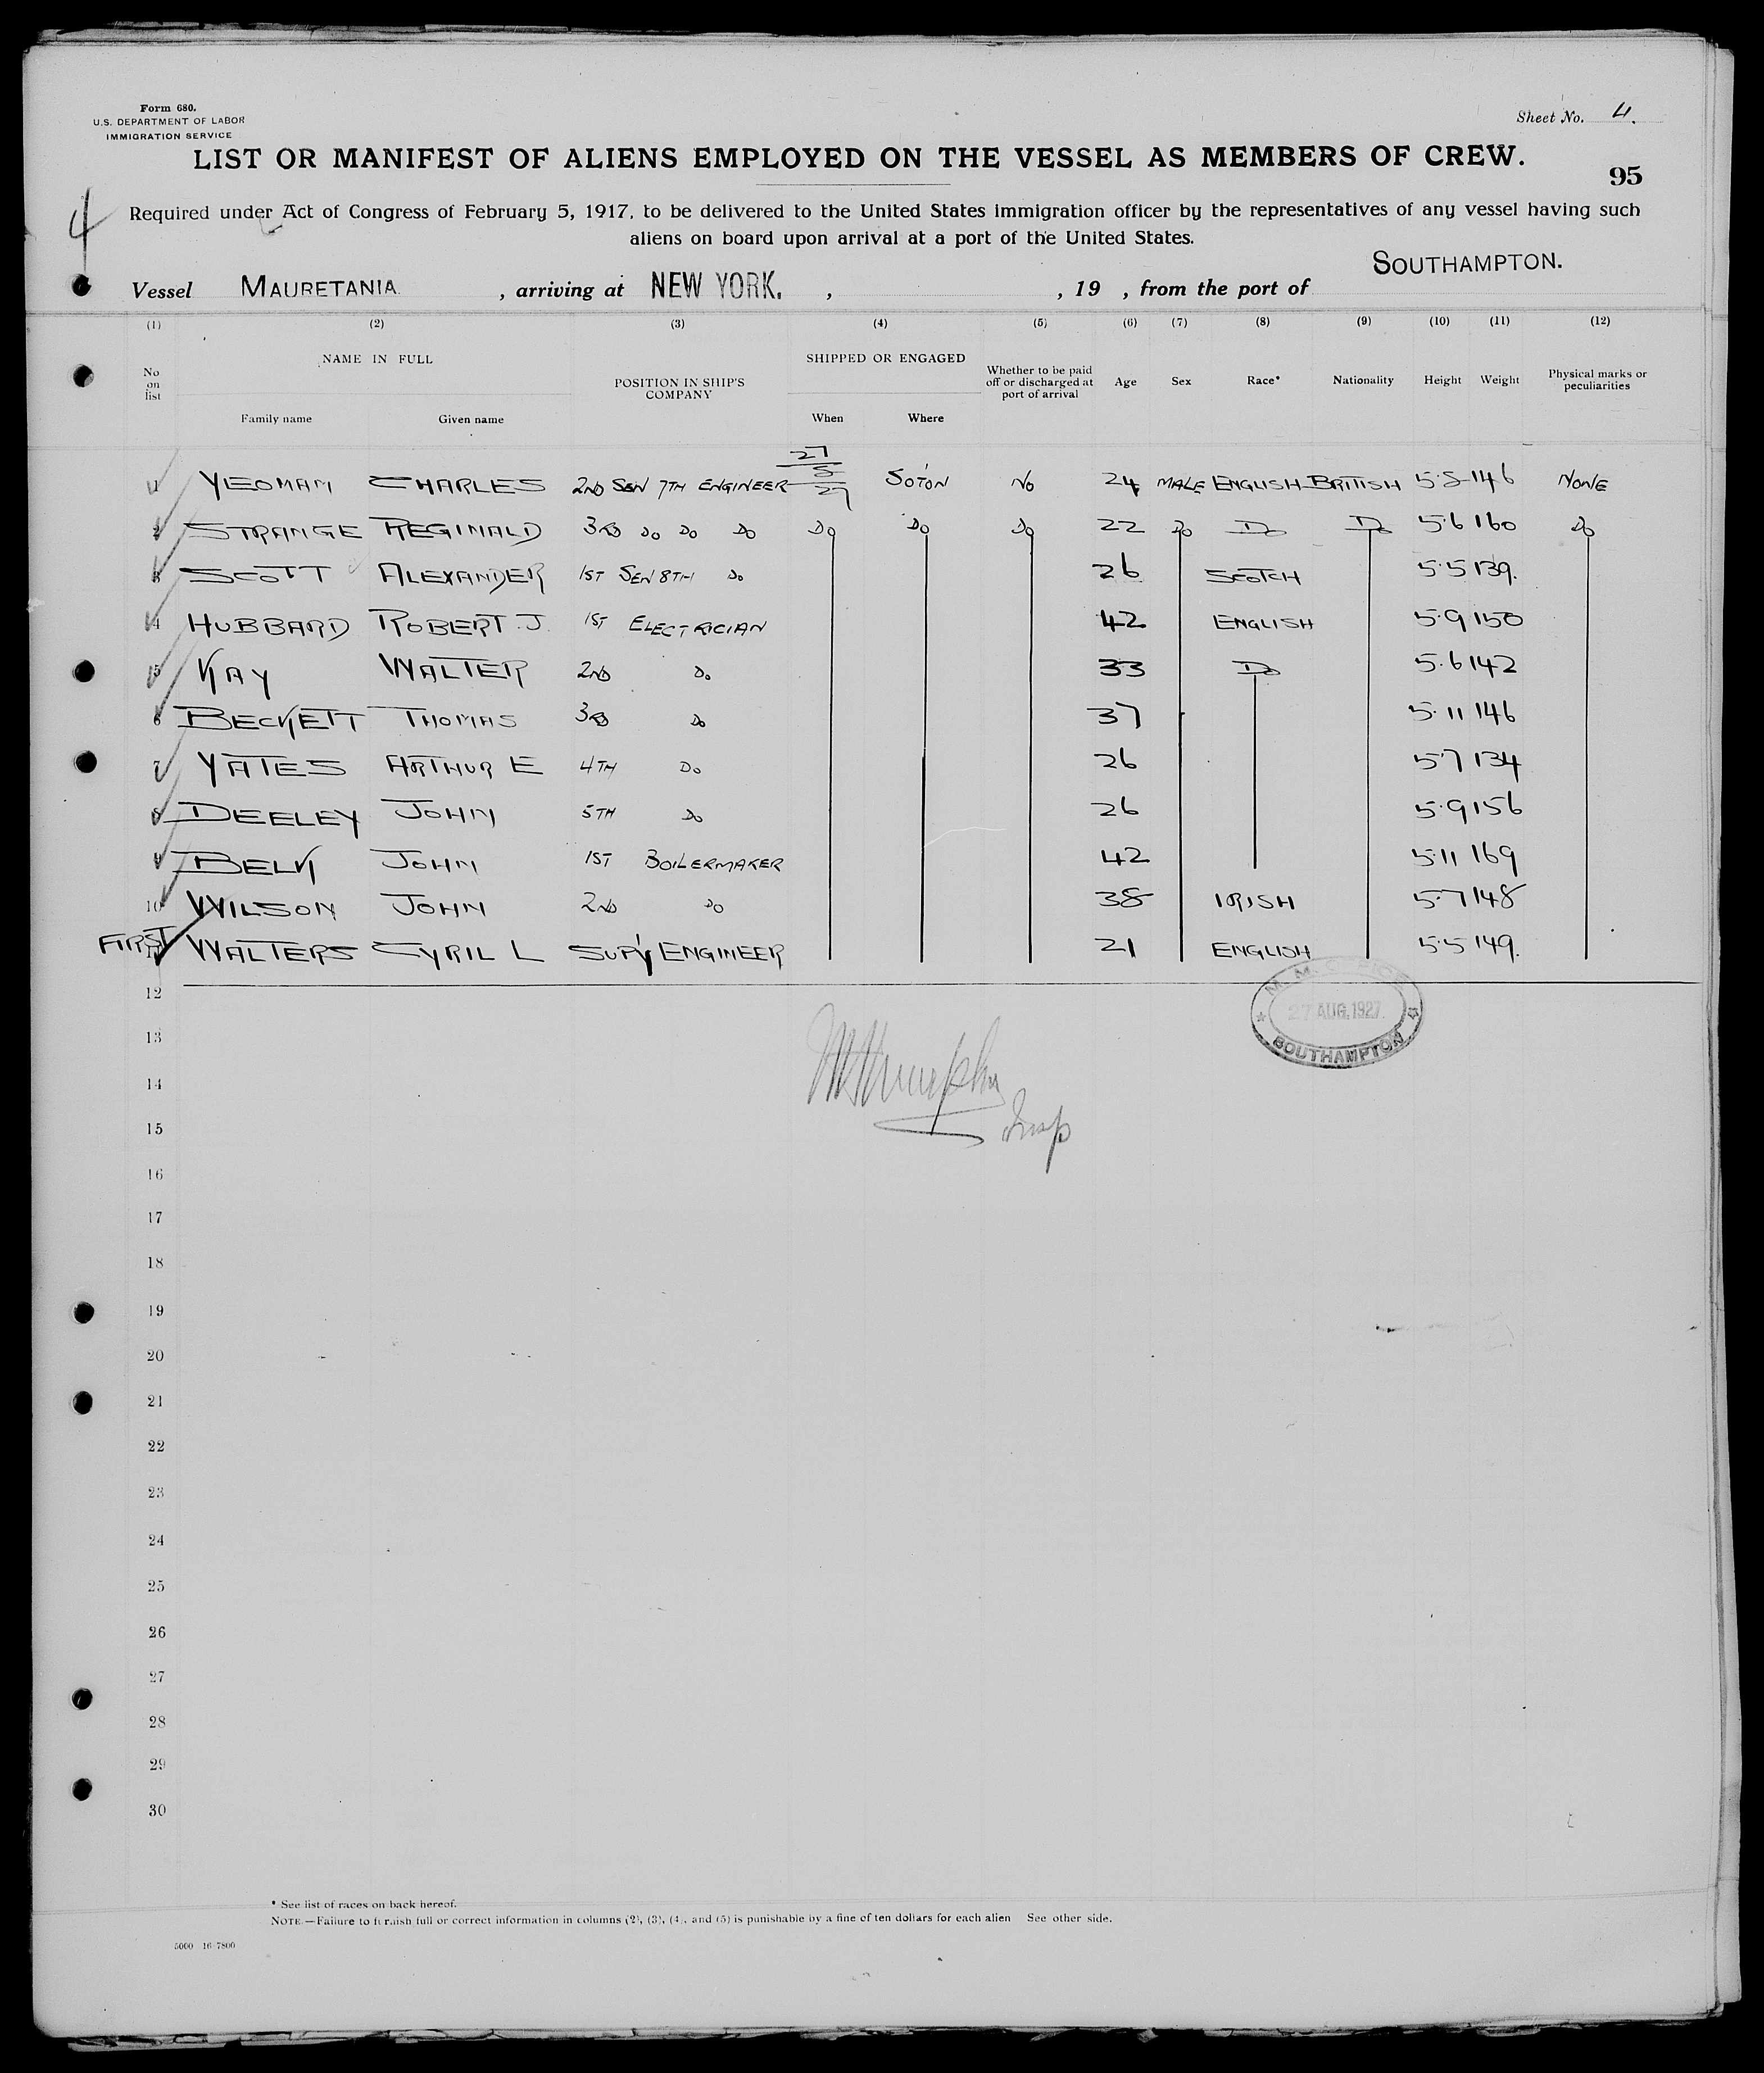 Form 680.
U.S. DEPARTMENT OF LABOR
IMMIGRATION SERVICE
Sheet No. 4.
LIST OR MANIFEST OF ALIENS EMPLOYED ON THE VESSEL AS MEMBERS OF CREW.
95
4
Required under Act of Congress of February 5, 1917, to be delivered to the United States immigration officer by the representatives of any vessel having such
aliens on board upon arrival at a port of the United States.
Vessel MAURETANIA, arriving at NEW YORK. , , 19 , from the port of SOUTHAMPTON.
(1) (2) (3) (4) (5) (6) (7) (8) (9) (10) (11) (12)
No on list NAME IN FULL POSITION IN SHIP'S COMPANY SHIPPED OR ENGAGED Whether to be paid off or discharged at port of arrival Age Sex Race* Nationality Height Weight Physical marks or peculiarities
Family name Given name When Where
1 YEOMAN CHARLES 2ND SEN 7TH ENGINEER 27/8/27 SO'TON NO 24 MALE ENGLISH BRITISH 5·8 146 NONE
2 STRANGE REGINALD 3RD DO DO DO DO DO DO 22 DO DO DO 5·6 160 DO
3 SCOTT ALEXANDER 1ST SEN 8TH DO 26 SCOTCH 5·5 139.
4 HUBBARD ROBERT. J. 1ST ELECTRICIAN 42 ENGLISH 5·9 150
5 KAY WALTER 2ND DO 33 DO 5·6 142
6 BECKETT THOMAS 3RD DO 37 5·11 146
7 YATES ARTHUR E 4TH DO 26 5·7 134
8 DEELEY JOHN 5TH DO 26 5·9 156
9 BELK JOHN 1ST BOILERMAKER 42 5·11 169
10 WILSON JOHN 2ND DO 38 IRISH 5·7 148
FIRST 11 WALTERS CYRIL L SUP'Y ENGINEER 21 ENGLISH 5·5 149.
M. M. OFFICE
27 AUG. 1927
SOUTHAMPTON
12
13
14
Insp
15
16
17
18
19
20
21
22
23
24
25
26
27
28
29
30
* See list of races on back hereof.
NOTE.—Failure to furnish full or correct information in columns (2), (3), (4), and (5) is punishable by a fine of ten dollars for each alien See other side.
5000 16-7800